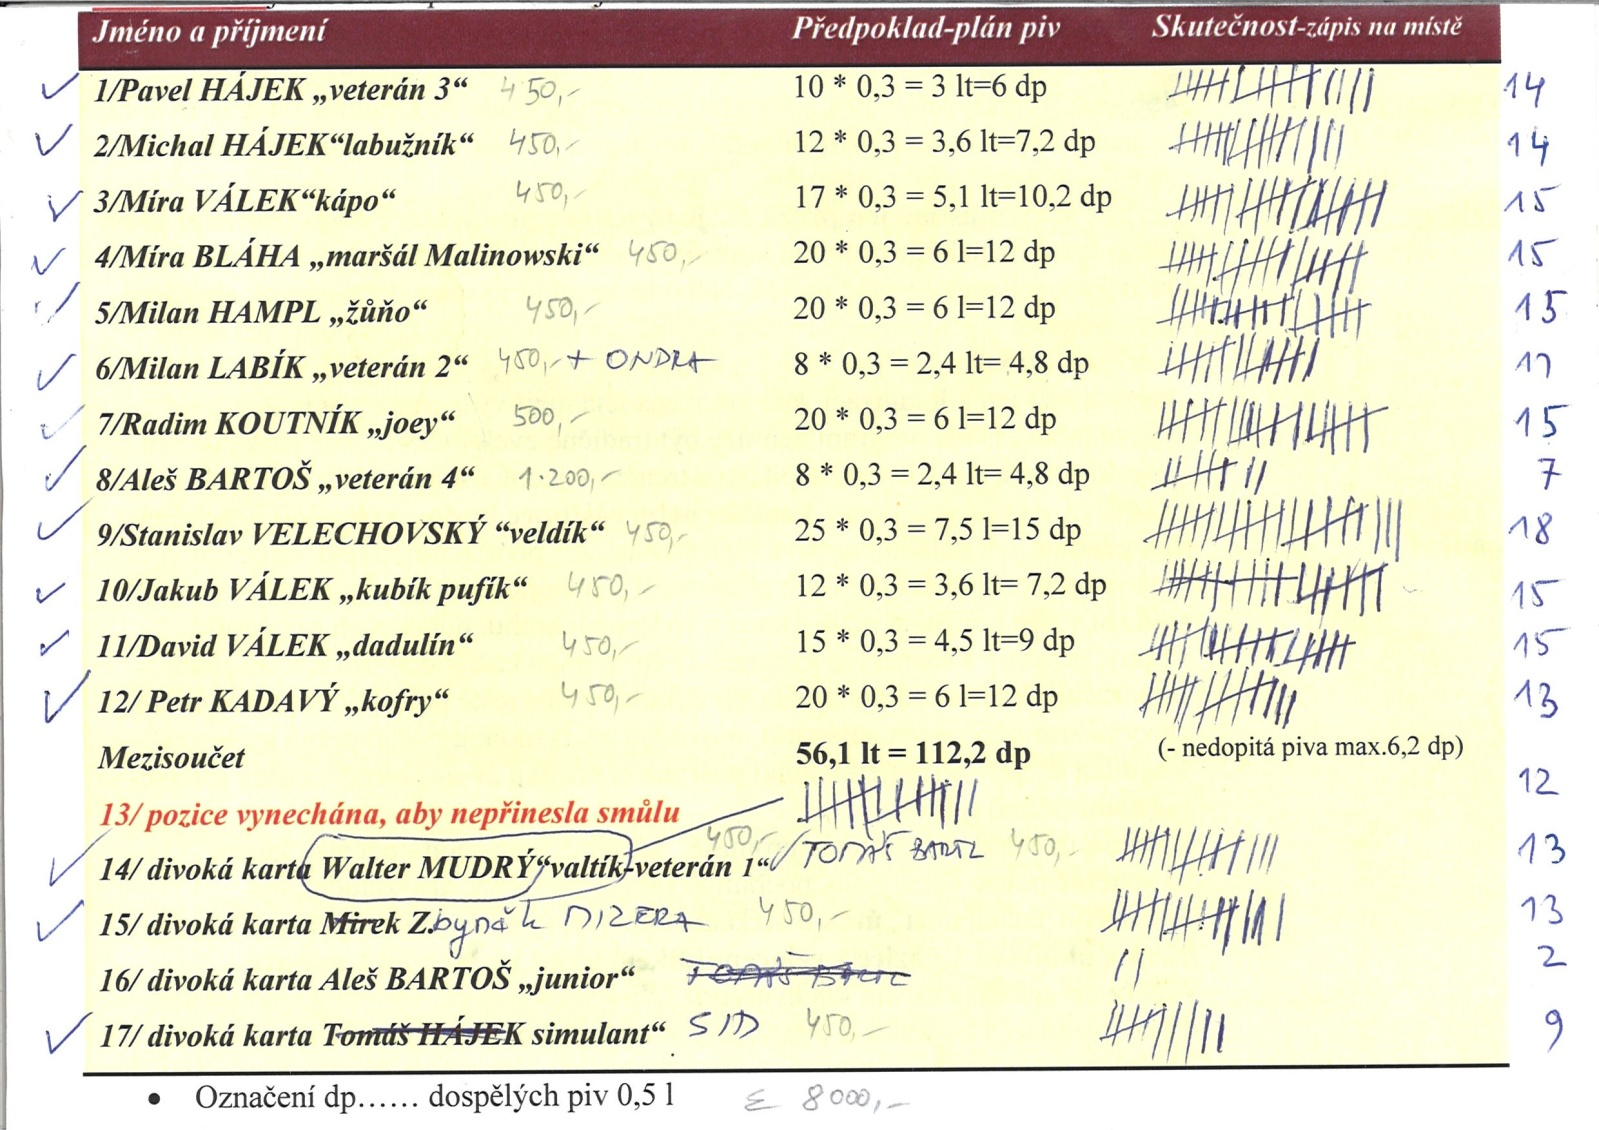 Jméno a příjmení Předpoklad-plán piv Skutečnost-zápis na místě
1/Pavel HÁJEK „veterán 3“ 450,- 10 * 0,3 = 3 lt=6 dp 14
2/Michal HÁJEK“labužník“ 450,- 12 * 0,3 = 3,6 lt=7,2 dp 14
3/Míra VÁLEK“kápo“ 450,- 17 * 0,3 = 5,1 lt=10,2 dp 15
4/Míra BLÁHA „maršál Malinowski“ 450,- 20 * 0,3 = 6 l=12 dp 15
5/Milan HAMPL „žůňo“ 450,- 20 * 0,3 = 6 l=12 dp 15
6/Milan LABÍK „veterán 2“ 450,- + ONDRA 8 * 0,3 = 2,4 lt= 4,8 dp 11
7/Radim KOUTNÍK „joey“ 500,- 20 * 0,3 = 6 l=12 dp 15
8/Aleš BARTOŠ „veterán 4“ 1.200,- 8 * 0,3 = 2,4 lt= 4,8 dp 7
9/Stanislav VELECHOVSKÝ “veldík“ 450,- 25 * 0,3 = 7,5 l=15 dp 18
10/Jakub VÁLEK „kubík pufík“ 450,- 12 * 0,3 = 3,6 lt= 7,2 dp 15
11/David VÁLEK „dadulín“ 450,- 15 * 0,3 = 4,5 lt=9 dp 15
12/ Petr KADAVÝ „kofry“ 450,- 20 * 0,3 = 6 l=12 dp 13
Mezisoučet 56,1 lt = 112,2 dp (- nedopitá piva max.6,2 dp)
13/ pozice vynechána, aby nepřinesla smůlu 12
14/ divoká karta Walter MUDRÝ“valtík-veterán 1“ 450,- TOMÁŠ BARTL 450,- 13
15/ divoká karta Mirek Z. MIZERA 450,- 13
16/ divoká karta Aleš BARTOŠ „junior“ 2
17/ divoká karta Tomáš HÁJEK simulant“ SID 450,- 9
• Označení dp…… dospělých piv 0,5 l Σ 8000,-